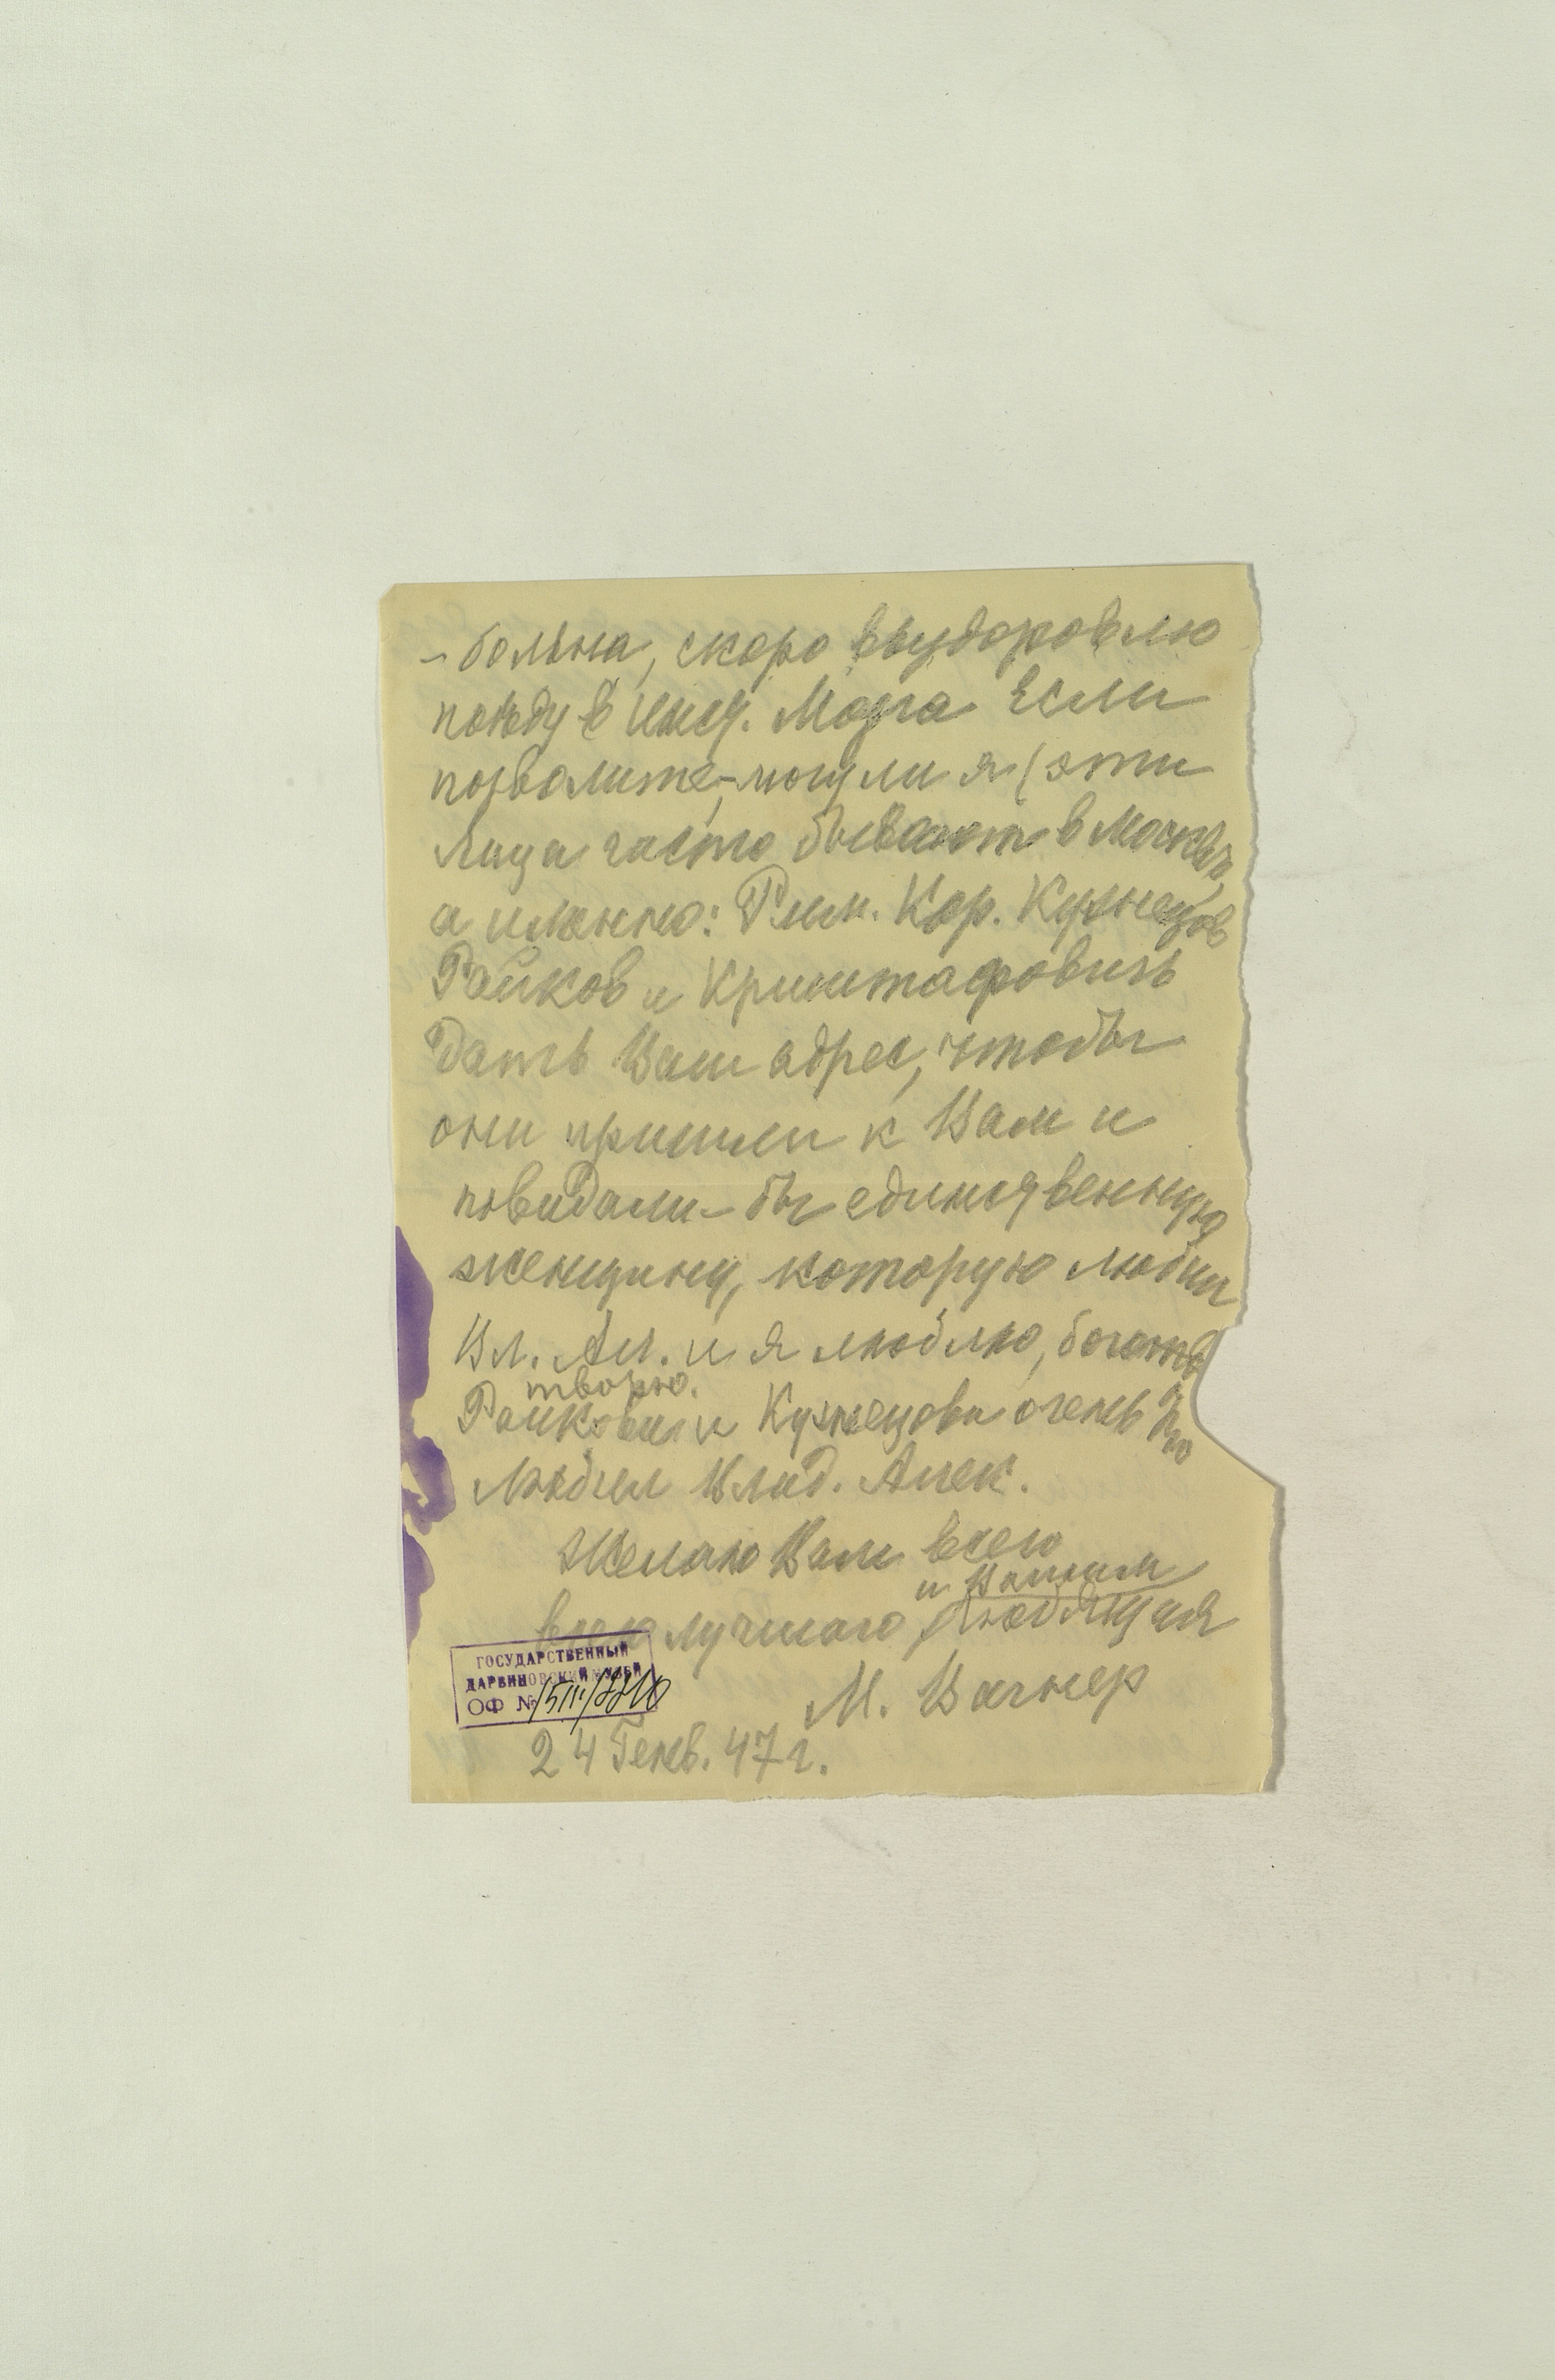 - больна, скоро выздоровлю
поѣду в инст. Мозга Если
позволите, могу ли я (эти
лица часто бывают в Москвѣ,
а именно: Рим. Кор. Кузнецов
Райков и Криштафовичь
дать Ваш адрес, чтобы
они пришли к Вам и
повидали-бы единственную
женщину, которую любил
Вл. Ал. и я люблю, богот
творю.
Райкова и Кузнецова очень
любил Влад. Алек.
Желаю Вам всего
и Вашим
всего лучшаго любящая
М. Вагнер
ГОСУДАРСТВЕННЫЙ
ДАРВИНОВСКИЙ МУЗЕЙ
ОФ №
24 Генв. 47 г.